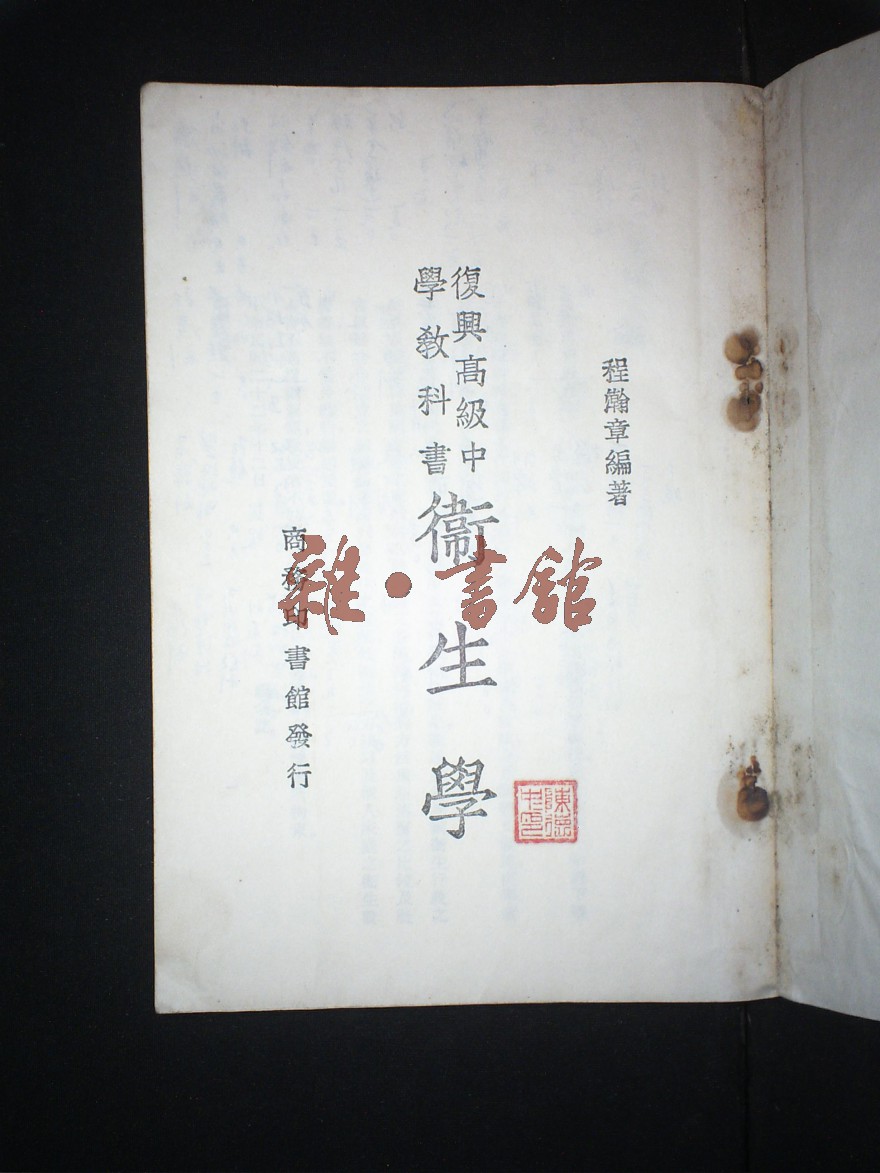 程瀚章編著
復興高級中
學教科書
衞生學
商務印書館發行
雜·書館
陳德中印